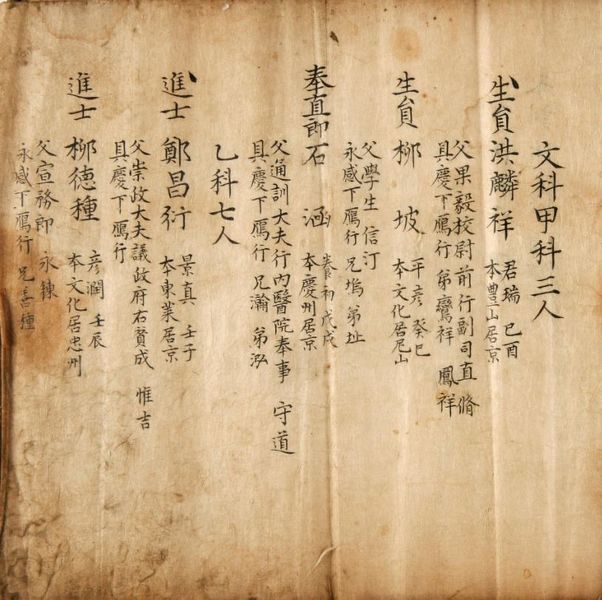 文科甲科三人
生員洪麟祥 君瑞 己酉
本豊山居京
父果毅校尉前行副司直脩
具慶下鴈行 弟鸞祥 鳳祥
生員柳坡 平彦 癸巳
本文化居尼山
父學生信汀
永感下鴈行兄塢弟址
奉直郎石涵 養初戊戌
本慶州居京
父通訓大夫行內醫院奉事 守道
具慶下鴈行 兄瀚 弟泓
乙科七人
進士鄭昌衍 景真 壬子
本東萊居京
父崇政大夫議政府右賛成 惟吉
具慶下鴈行
進士柳德種 彦潤 壬辰
本文化居忠州
父宣務郎 永鍊
永感下鴈行兄喜種